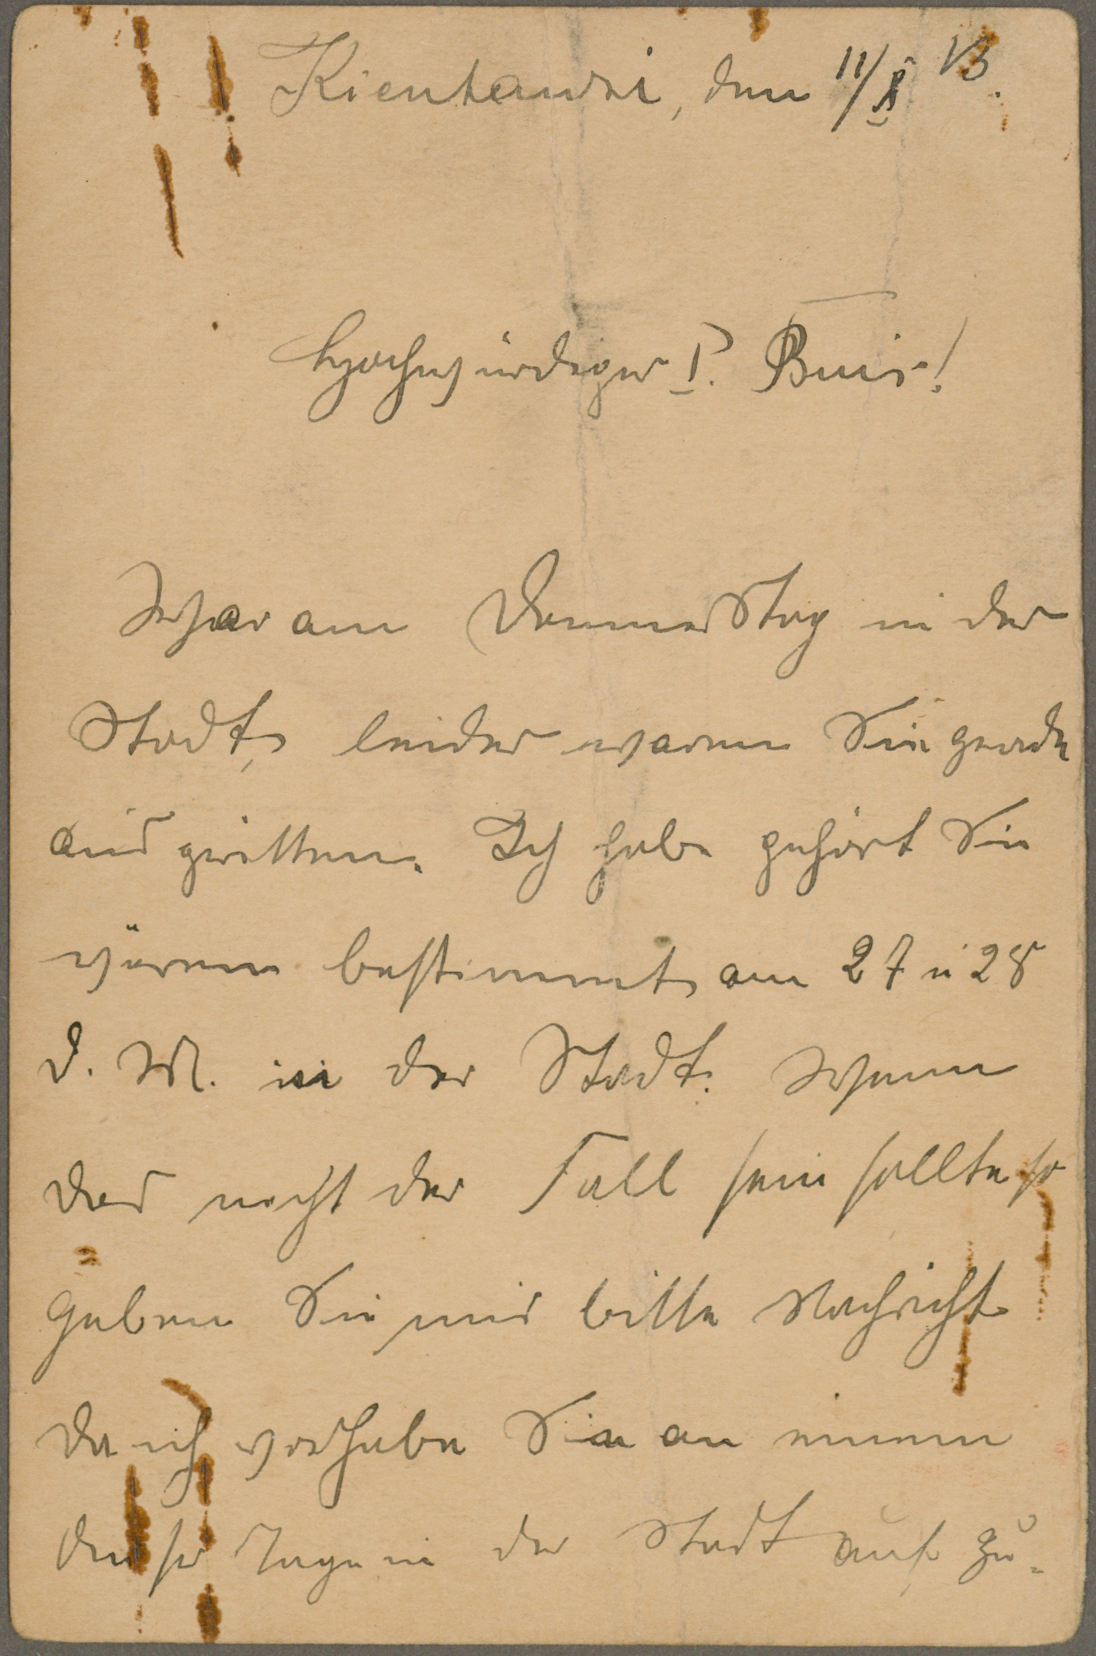 Kientandri, den 11/X 13.
Hochwürdiger P. Buis!
War am Donnerstag in der
Stadt, leider waren Sie gerade
ausgeritten. Ich habe gehört Sie
wären bestimmt am 27 u 28
d. M. in der Stadt. Wenn
das nicht der Fall sein sollte so
geben Sie mir bitte Nachricht
da ich vorhabe Sie an einem
dieser Tage in der Stadt auf zu-